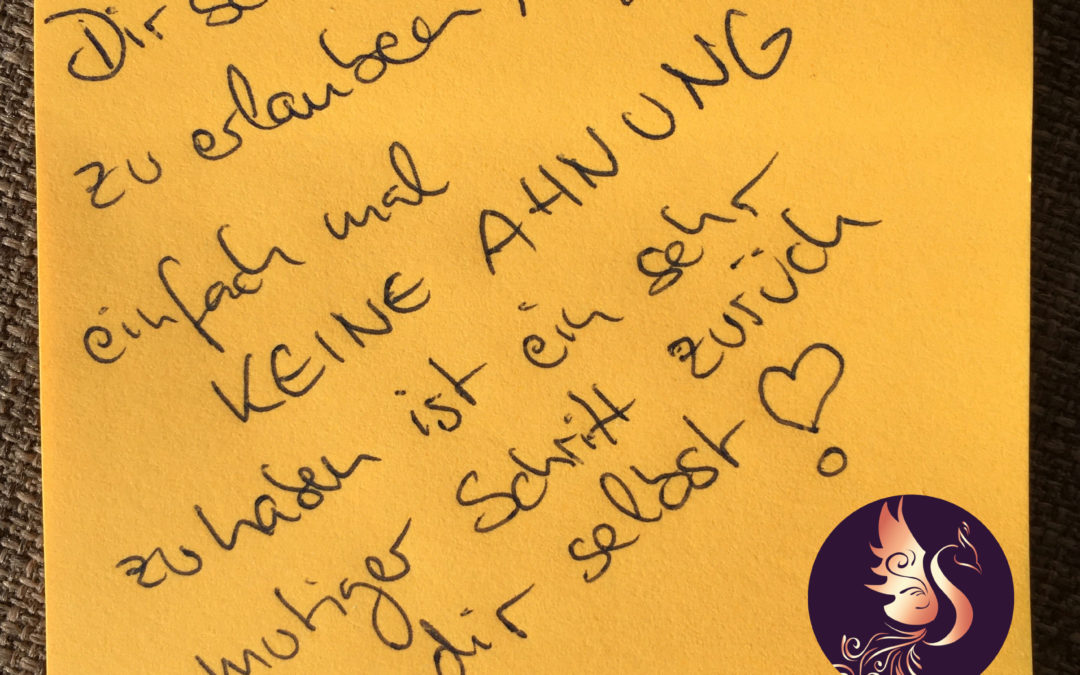 Dir
zu erlauben,
einfach mal
KEINE AHNUNG
zu haben ist ein sehr
mutiger Schritt zurück
dir selbst